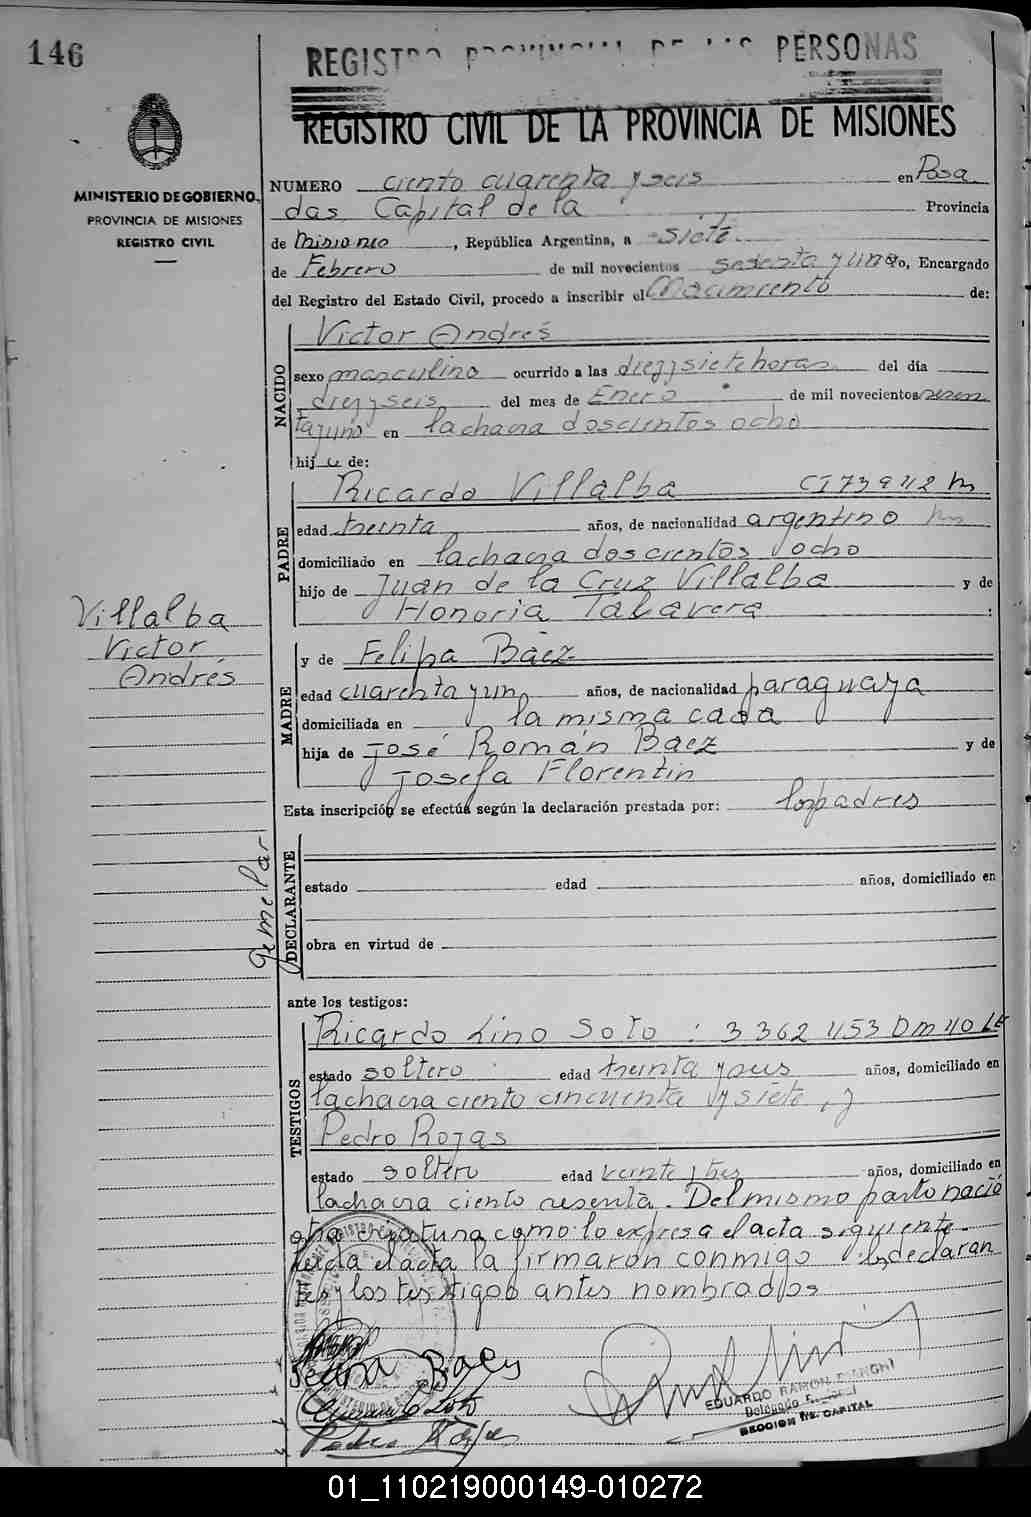 146
REGISTRO PROVINCIAL DE LAS PERSONAS
REGISTRO CIVIL DE LA PROVINCIA DE MISIONES
MINISTERIO DE GOBIERNO
PROVINCIA DE MISIONES
REGISTRO CIVIL
NUMERO ciento cuarenta y seis en Posa
das Capital de la Provincia
de Misiones, República Argentina, a siete
de Febrero de mil novecientos sesenta y uno Yo, Encargado
del Registro del Estado Civil, procedo a inscribir el Nacimiento de:
NACIDO
Victor Andrés
sexo masculino ocurrido a las diez y siete horas del día
diez y seis del mes de Enero de mil novecientos sesen
ta y uno en la chacra doscientos ocho
hijo de:
PADRE
Ricardo Villalba CI 73942 M
edad treinta años, de nacionalidad argentino
domiciliado en la chacra doscientos ocho
hijo de Juan de la Cruz Villalba y de
Honoria Talavera :
Villalba
Victor
Andrés
MADRE
y de Felipa Báez
edad cuarenta y un años, de nacionalidad paraguaya
domiciliada en la misma casa
hija de José Román Baez y de
Josefa Florentin
Esta inscripción se efectúa según la declaración prestada por: los padres
Gemelar
DECLARANTE
estado edad años, domiciliado en
obra en virtud de
ante los testigos:
TESTIGOS
Ricardo Lino Soto : 3362453 DM 40 LE
estado soltero edad treinta y seis años, domiciliado en
la chacra ciento cincuenta y siete, y
Pedro Rojas
estado soltero edad veinte y tres años, domiciliado en
la chacra ciento sesenta. Del mismo parto nació
otra criatura como lo expresa el acta siguiente.
Leida el acta la firmaron conmigo los declaran
tes y los testigos antes nombrados
Baez
Soto
Pedro Rojas
EDUARDO RAMON
Delegado
SECCION CAPITAL
01_110219000149-010272